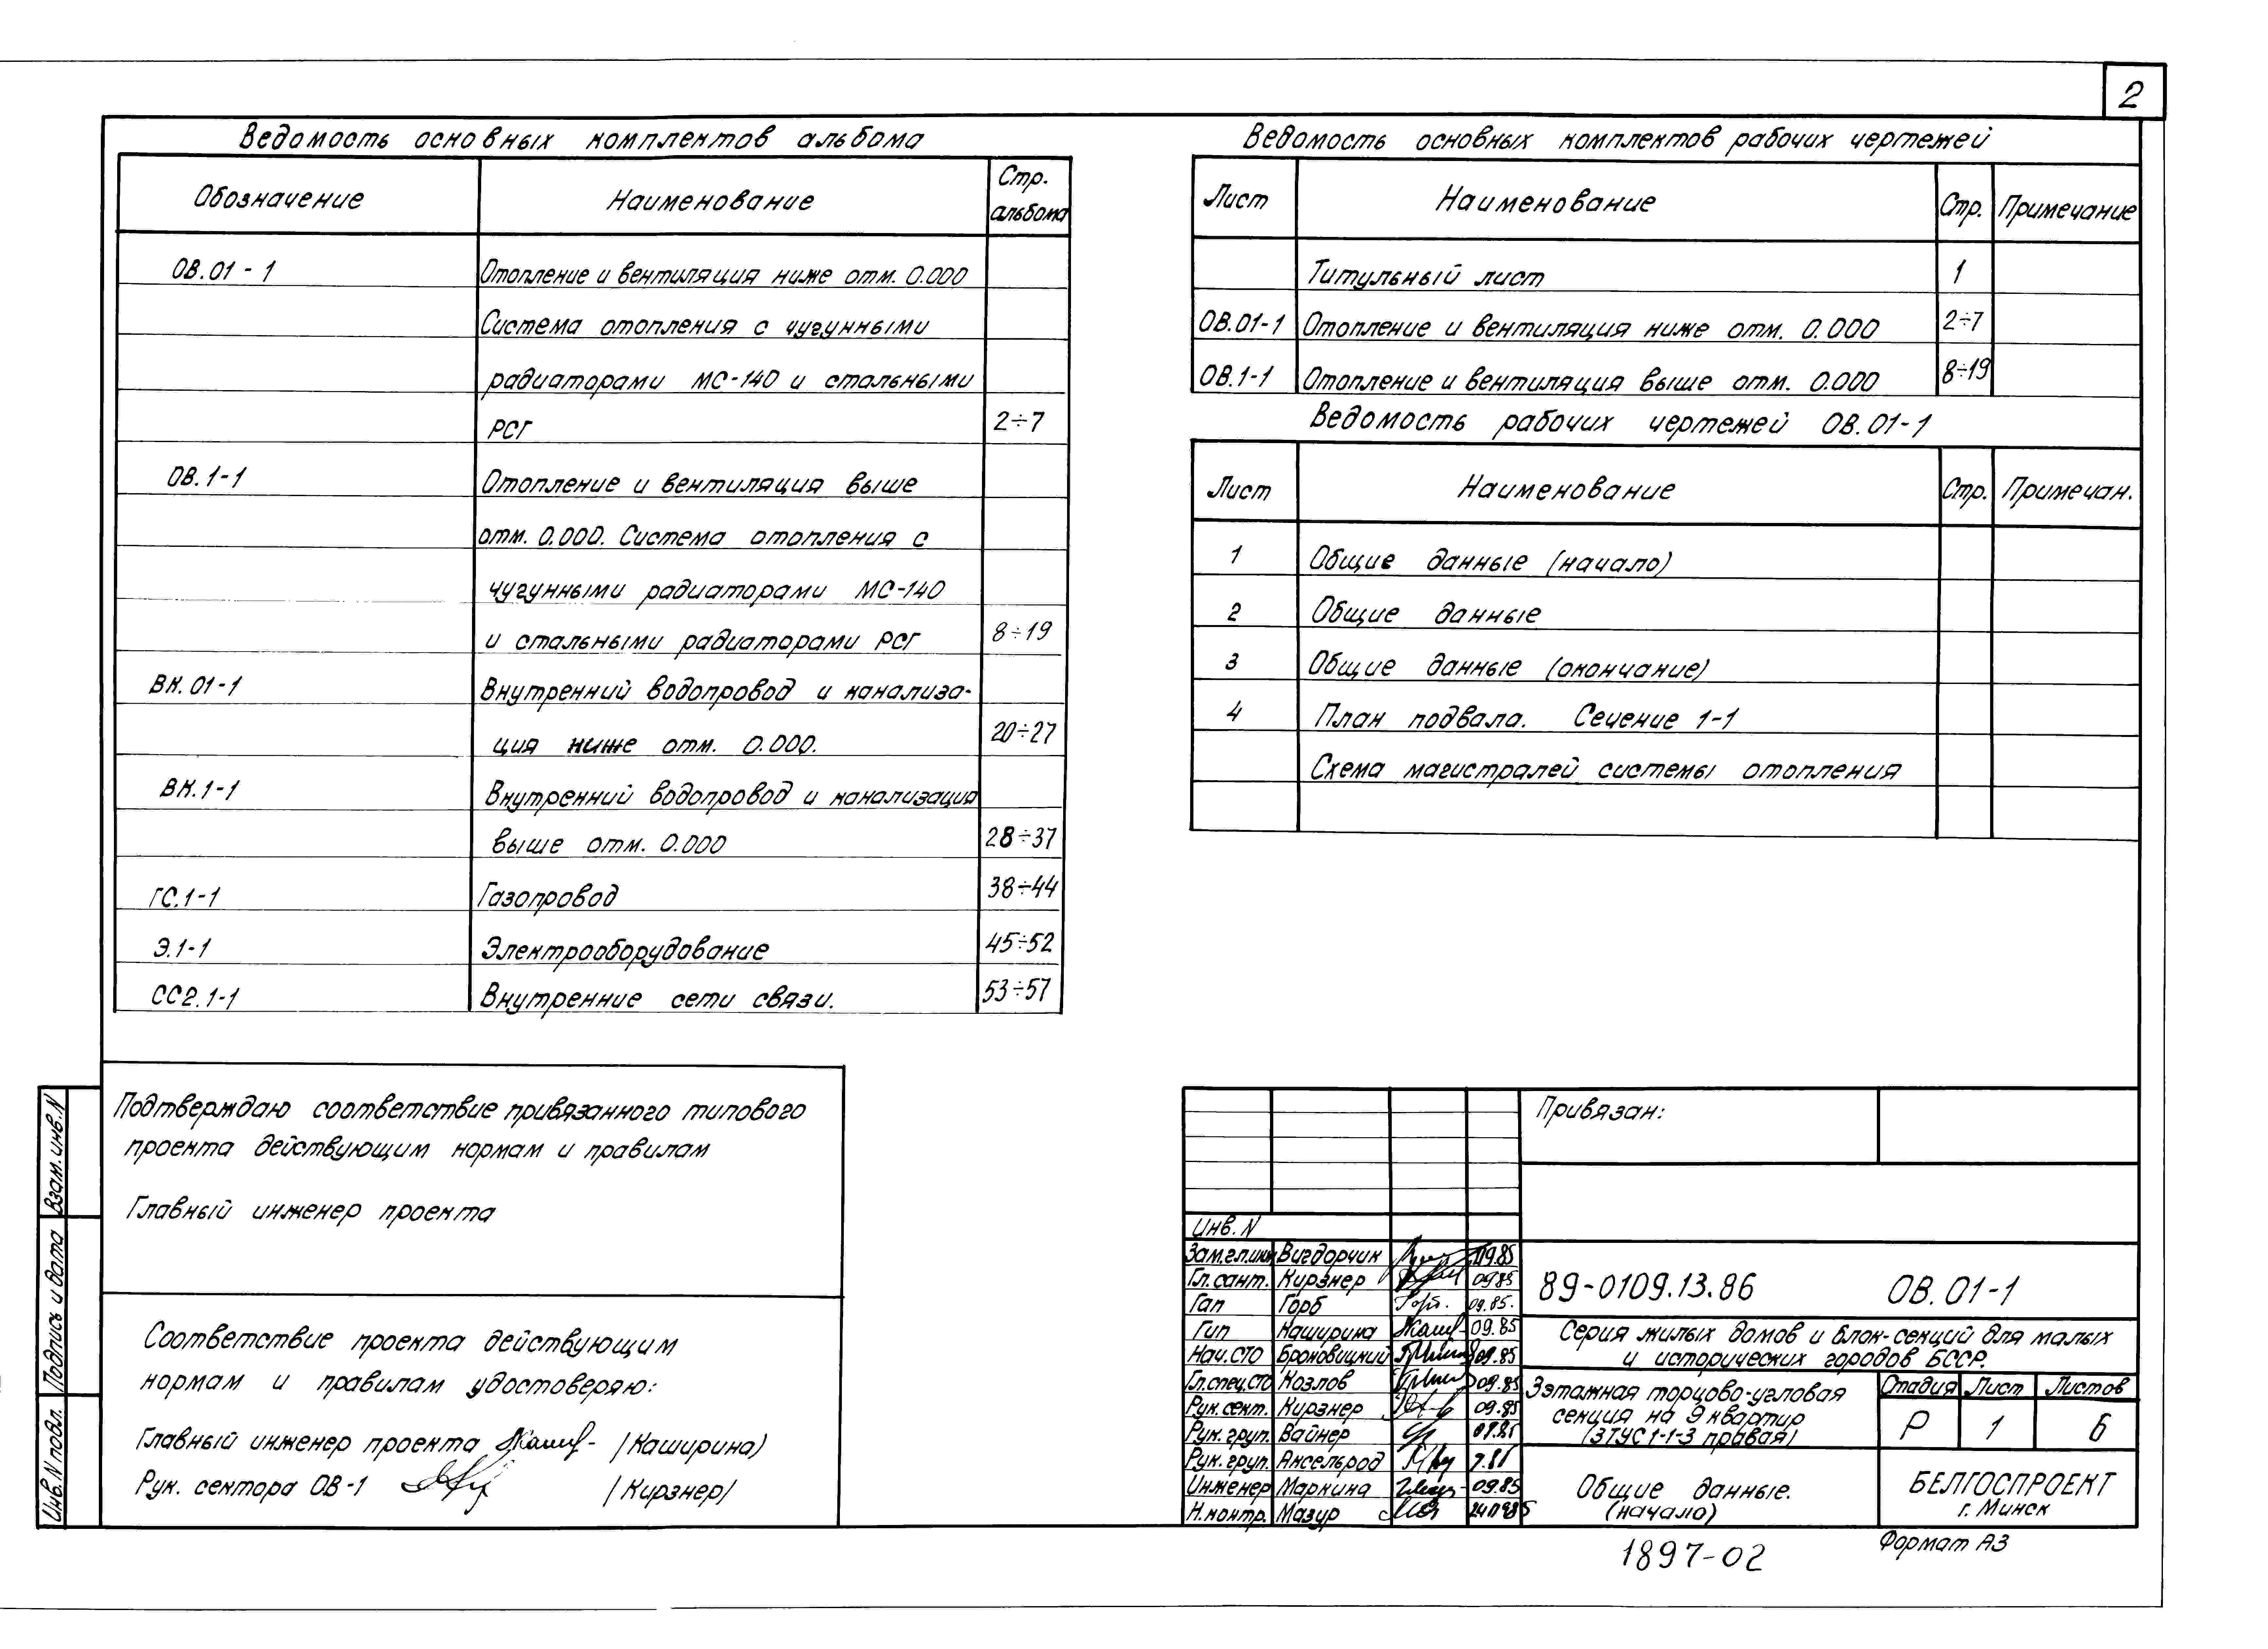 2
Ведомость основных комплектов альбома
Обозначение Наименование Стр. альбома
ОВ.01-1 Отопление и вентиляция ниже отм. 0.000
Система отопления с чугунными
радиаторами МС-140 и стальными
РСГ 2÷7
ОВ.1-1 Отопление и вентиляция выше
отм. 0.000. Система отопления с
чугунными радиаторами МС-140
и стальными радиаторами РСГ 8÷19
ВК.01-1 Внутренний водопровод и канализа-
ция ниже отм. 0.000. 20÷27
ВК.1-1 Внутренний водопровод и канализация
выше отм. 0.000 28÷37
ГС.1-1 Газопровод 38÷44
Э.1-1 Электрооборудование 45÷52
СС2.1-1 Внутренние сети связи. 53÷57
Ведомость основных комплектов рабочих чертежей
Лист Наименование Стр. Примечание
Титульный лист 1
ОВ.01-1 Отопление и вентиляция ниже отм. 0.000 2÷7
ОВ.1-1 Отопление и вентиляция выше отм. 0.000 8÷19
Ведомость рабочих чертежей ОВ.01-1
Лист Наименование Стр. Примечан.
1 Общие данные (начало)
2 Общие данные
3 Общие данные (окончание)
4 План подвала. Сечение 1-1
Схема магистралей системы отопления
Подтверждаю соответствие привязанного типового
проекта действующим нормам и правилам
Главный инженер проекта
Соответствие проекта действующим
нормам и правилам удостоверяю:
Главный инженер проекта /Каширина/
Рук. сектора ОВ-1 /Кирзнер/
Взам. инв. N
Подпись и дата
Инв. N подл.
Привязан:
Инв. N
Зам.гл.инж Вигдорчик 09.85
Гл.сант. Кирзнер 09.85
Гап Горб 09.85.
Гип Каширина 09.85
Нач.СТО Броновицкий 09.85
Гл.спец.СТО Козлов 09.85
Рук.сект. Кирзнер 09.85
Рук.груп. Вайнер
Рук.груп. Аксельрод
Инженер Маркина 09.85
Н.контр. Мазур
89-0109.13.86 ОВ.01-1
Серия жилых домов и блок-секций для малых
и исторических городов БССР.
3этажная торцово-угловая
секция на 9 квартир
(3ТУС1-1-3 правая)
Стадия Лист Листов
Р 1 6
Общие данные.
(начало)
БЕЛГОСПРОЕКТ
г. Минск
1897-02
Формат А3